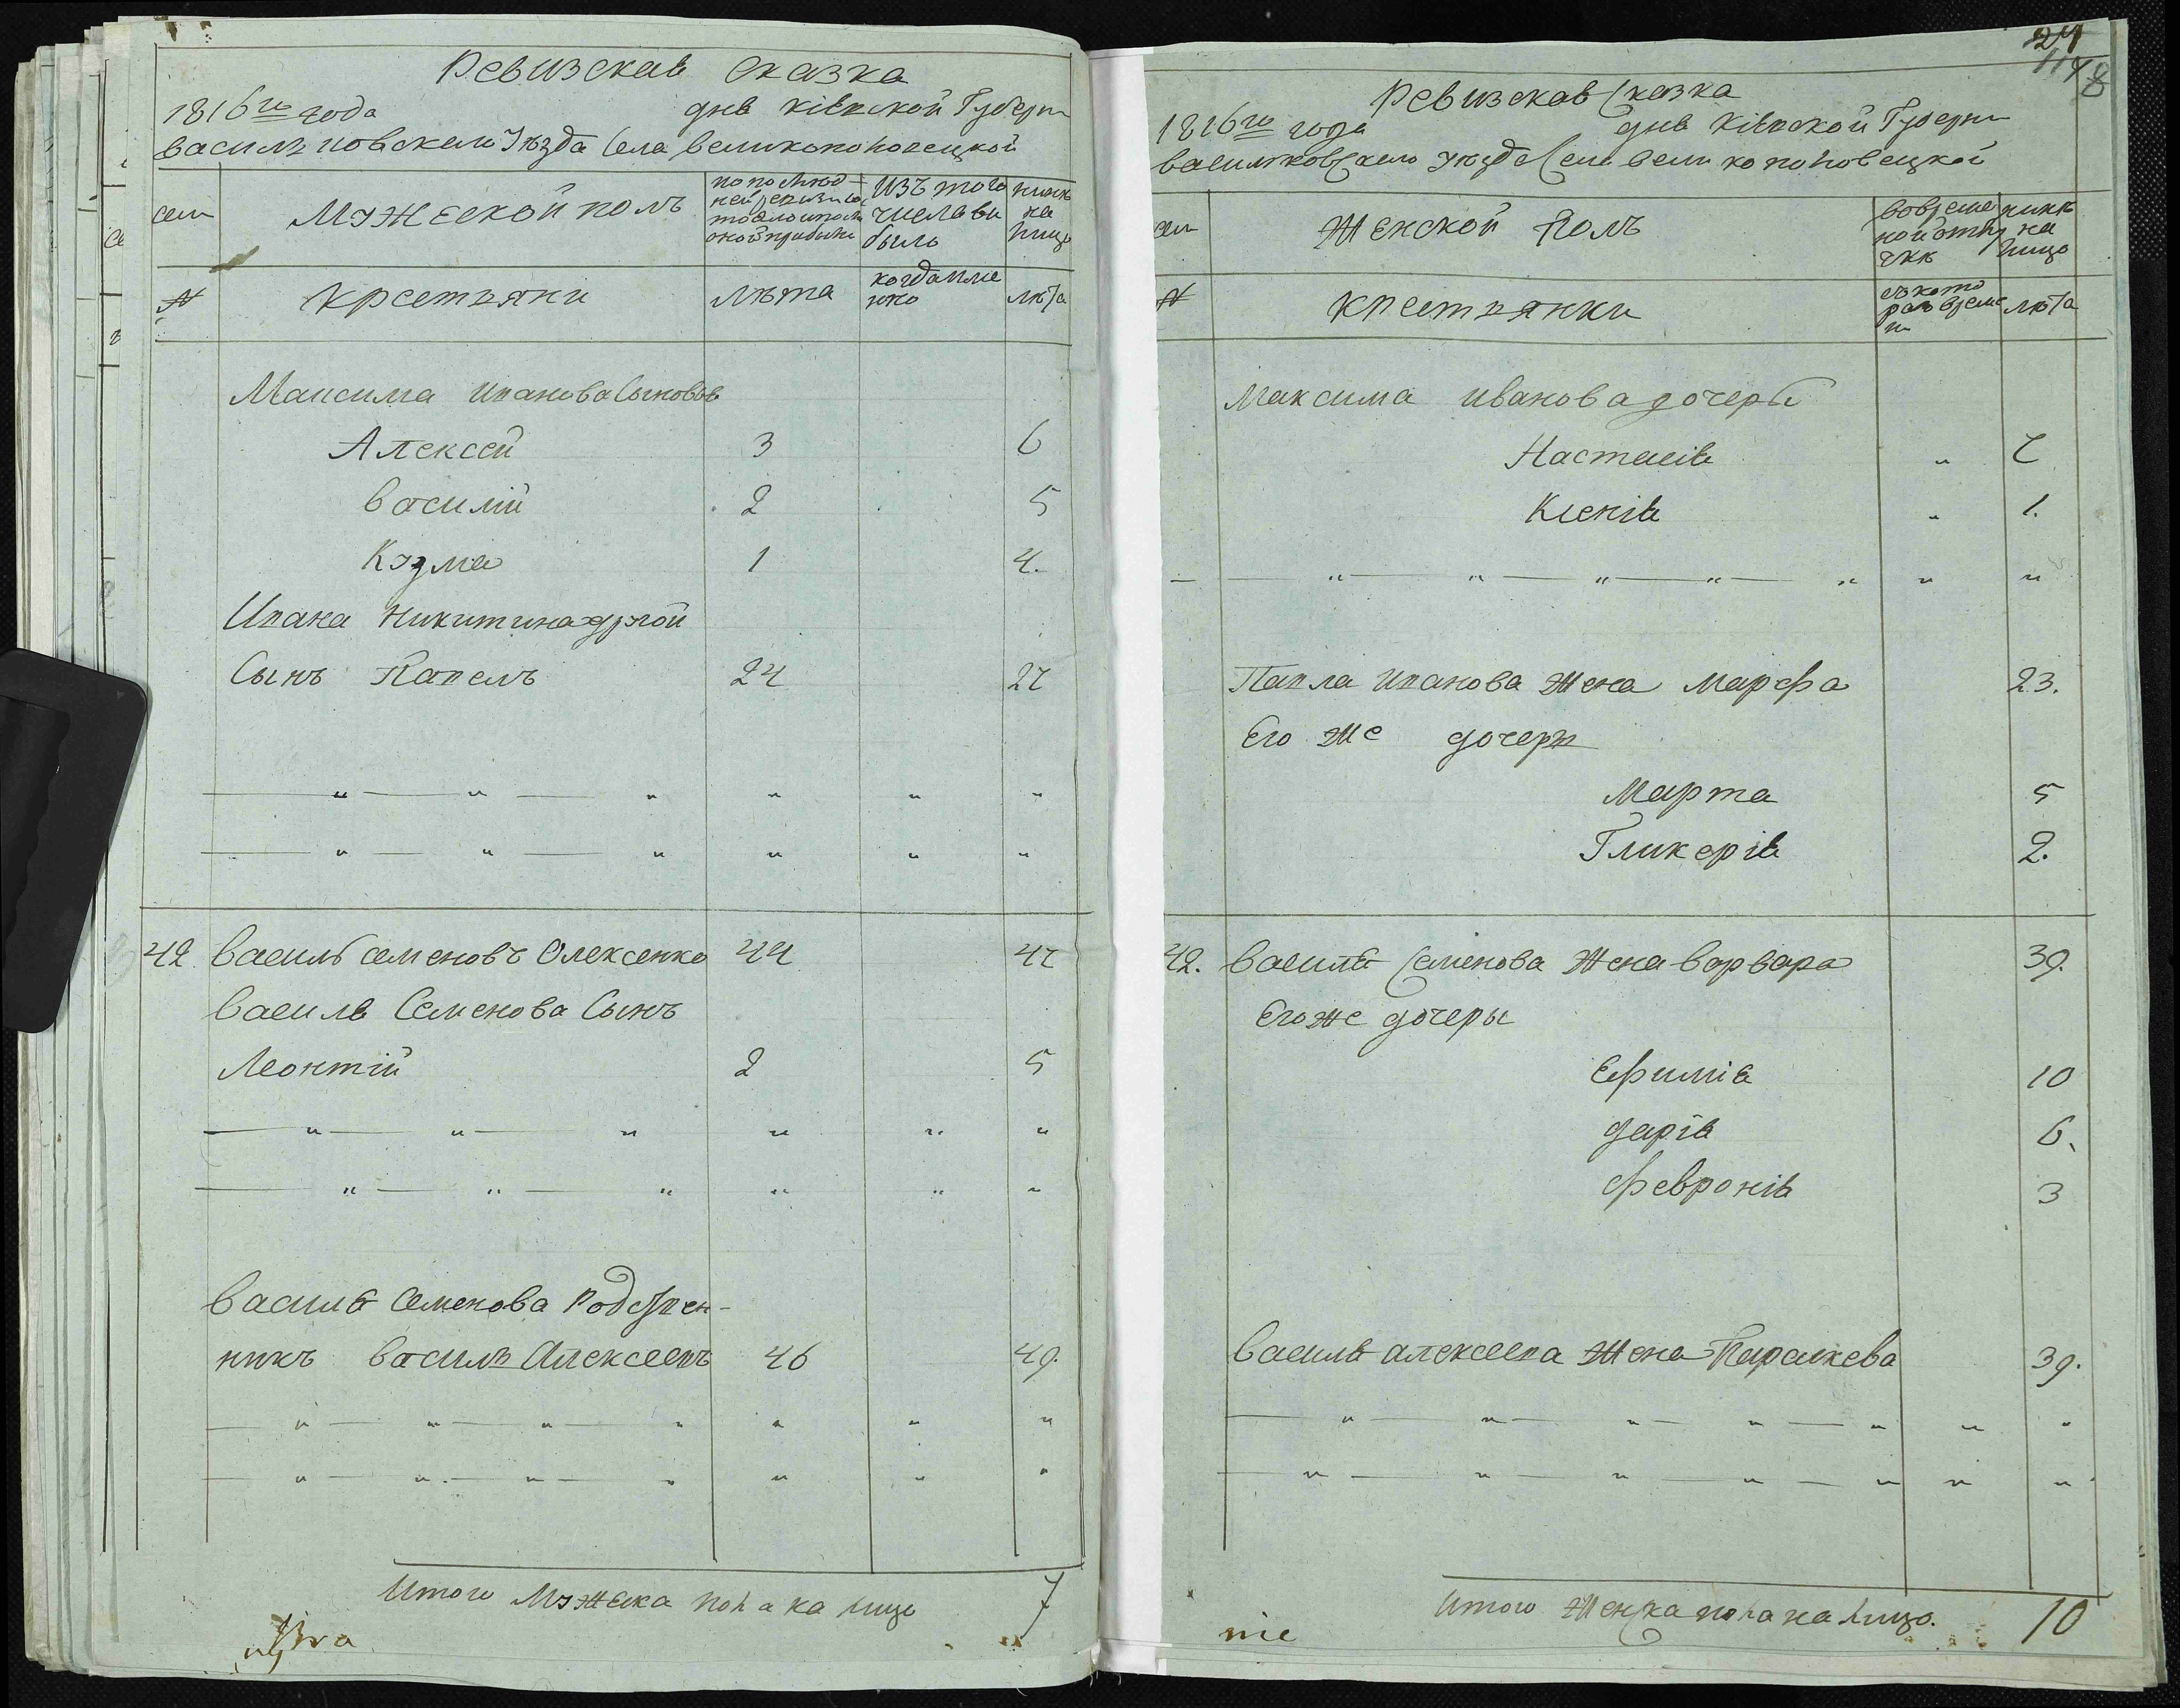 Ревизская Сказка
1816го года дня Кіевской Губерни
Василъковскаго Уезда Села Великополовецкой
сем
Мужеской полъ
по послед
ней ревизи со
стояло и посл
оной прибыло
Изъ того
числа вы
было
ныне
на
лицо
№
Крестяни
Лета
когда име
нно
лета
Максима Иванова Сыновья
Алексей 3 6
Василий 2 5
Кузма 1 4.
Ивана Никитина другой
Сынъ Павелъ 24 27
— " — " — " " " "
— " — " — " " " "
42 Василь Семеновъ Олексенко 44 47
Василя Семенова Сынъ
Леонтій 2 5
— " — " — " " " "
— " — " — " " " "
Василя Семенова Родствен-
никъ Василъ Алексеевъ 46 49.
— " — " — " — " " " "
— " — " — " — " " " "
Итого Мужеска пола на лицо 7
24
Ревизская Сказка
1816го года дня Кіевской Губерни
Василковскаго уезда Села Великополовецкой
сем
Женской Полъ
Во време
ной отлу
чке
ныне
на
лицо
№
Крестянки
съ кото
раго време
ни
лета
Максима Иванова дочеры
Настасія " 7
Ксенія " 1.
— — " — " — " — " — " " "
Павла Иванова Жена Марфа 23.
Его же дочеры
Марта 5
Гликерія 2.
42. Василя Семенова Жена Варвара 39.
Его же дочеры
Ефимія 10
Дарія 6.
Февронія 3
Василя Алексеева Жена Параскева 39.
— " — " — " — " — " " "
— " — " — " — " — " " "
Итого Женска пола на лицо. 10